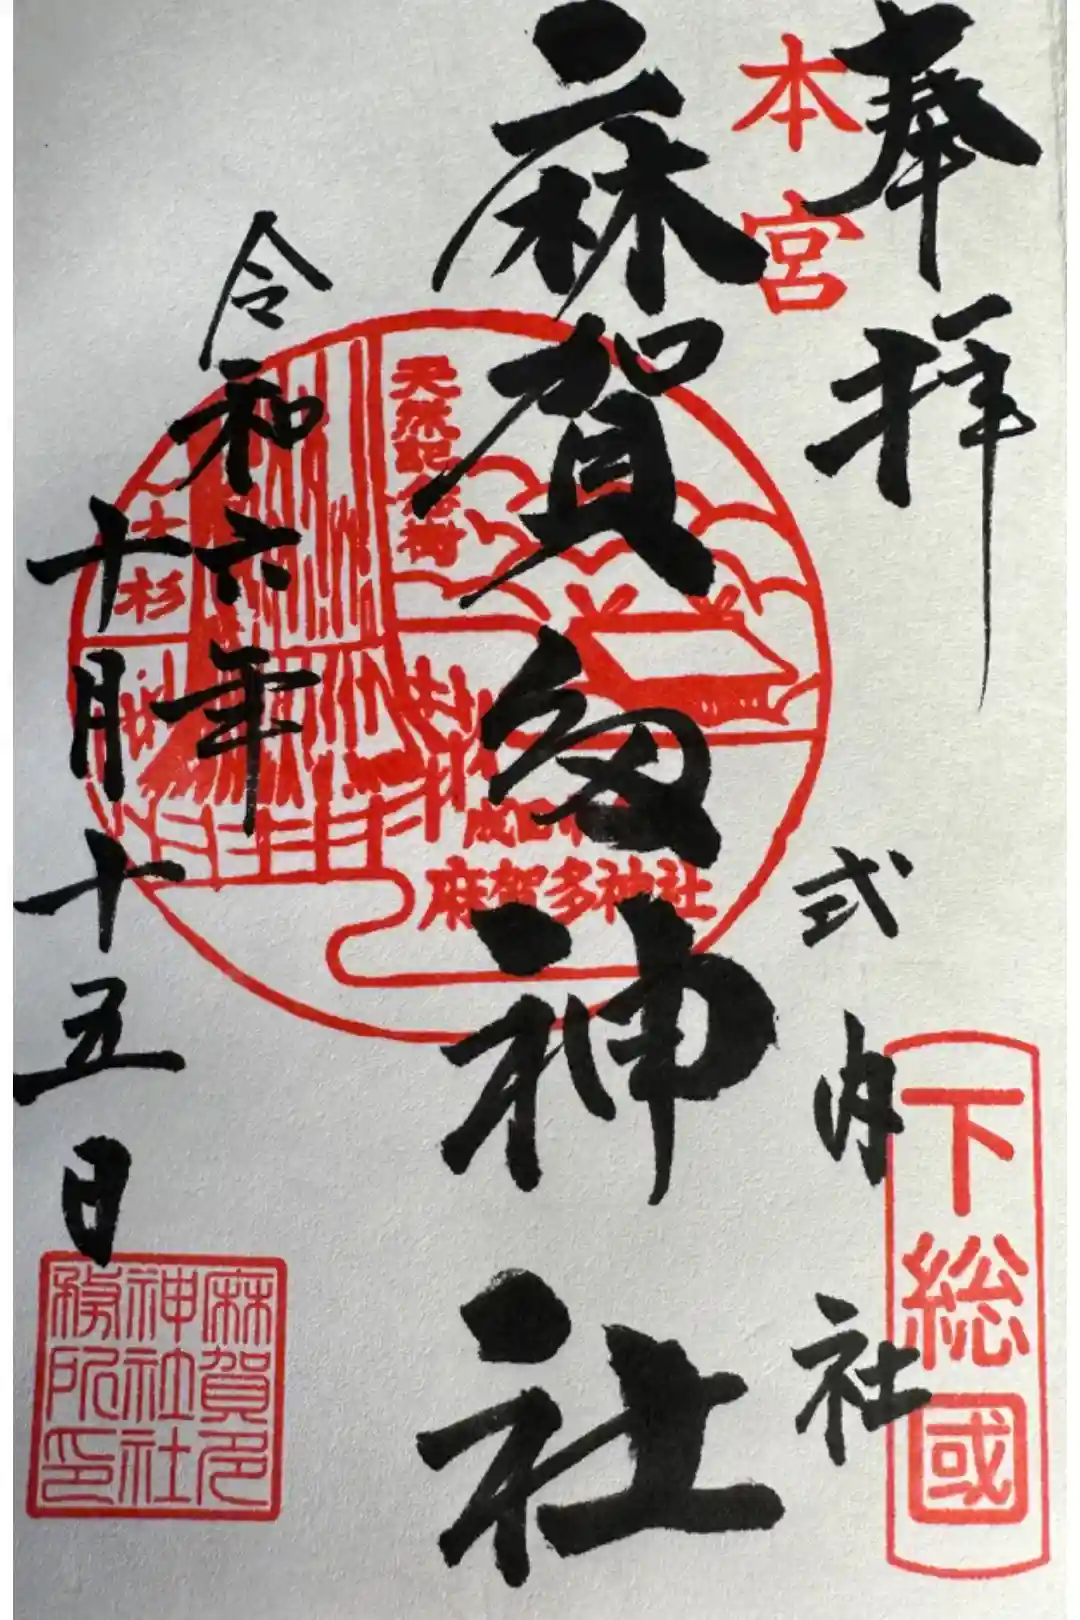 奉拝
本宮
式内社
下総國
麻賀多神社
天然記念樹
大杉
成田市
麻賀多神社
令和六年
十月十五日
麻賀多
神社社
務所印